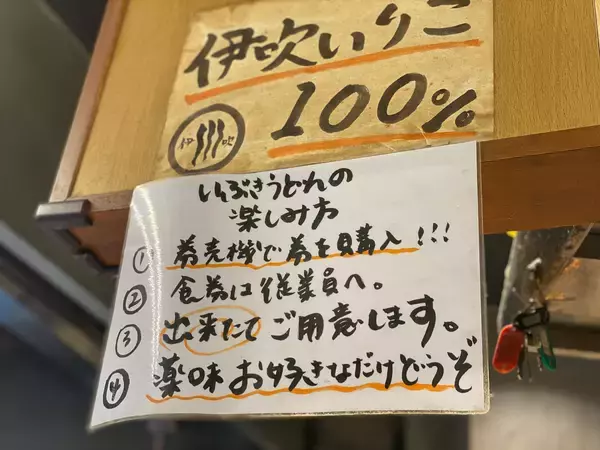 伊吹いりこ
100%
伊吹
いぶきうどんの
楽しみ方
① 券売機で券を購入!!!
② 食券は従業員へ。
③ 出来たてご用意します。
④ 薬味お好きなだけどうぞ